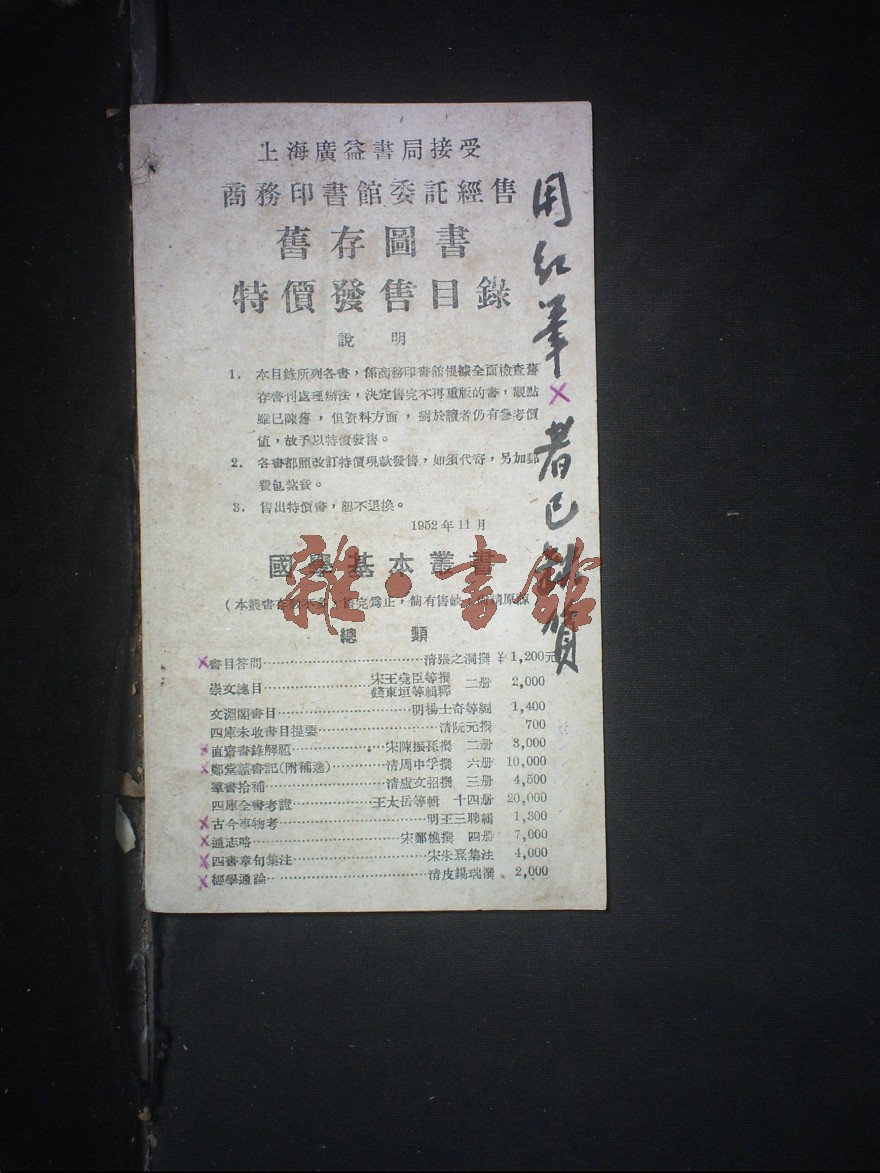 上海廣益書局接受
商務印書館委託經售
舊存圖書
特價發售目錄
說 明
1. 本目錄所列各書，係商務印書館根據全面檢查舊
存書刊處理辦法，決定售完不再重版的書，觀點
雖已陳舊，但資料方面，對於讀者仍有參考價
值，故予以特價發售。
2. 各書都照改訂特價現款發售，如須代寄，另加郵
費包紮費。
3. 售出特價書，恕不退換。
1952年11月
國學基本叢書
(本叢書存 售完爲止，倘有售缺 請原諒
總 類
×書目答問…清張之洞撰 ¥1,200元
崇文總目…宋王堯臣等撰 錢東垣等輯釋 二册 2,000
文淵閣書目…明楊士奇等編 1,400
四庫未收書目提要…清阮元撰 700
×直齋書錄解題…宋陳振孫撰 二册 3,000
×鄭堂讀書記(附補逸)…清周中孚撰 六册 10,000
羣書拾補…清盧文弨撰 三册 4,500
四庫全書考證…王太岳等輯 十四册 20,000
×古今事物考…明王三聘輯 1,300
×通志略…宋鄭樵撰 四册 7,000
×四書章句集注…宋朱熹集注 4,000
×經學通論…清皮錫瑞撰 2,000
用紅筆×者已缺貨
雜·書館